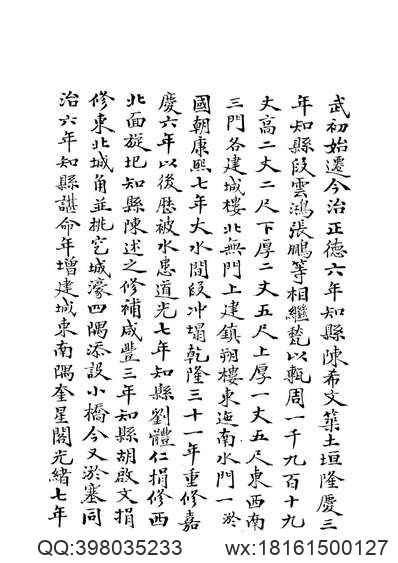 武初始遷今治正德六年知縣陳希文築土垣隆慶三
年知縣段雲鴻張鵬等相繼甃以甎周一千九百十九
丈高二丈二尺下厚二丈五尺上厚一丈五尺東西南
三門各建城樓北無門上建鎮朔樓東迤南水門一於
國朝康熙七年大水間段冲塌乾隆三十一年重修嘉
慶六年以後歷被水患道光七年知縣劉體仁捐修西
北面旋圮知縣陳述之修補咸豐三年知縣胡啟文捐
修東北城角並挑穵城濠四隅添設小橋今又淤塞同
治六年知縣諶命年增建城東南隅奎星閣光緒七年
QQ:398035233 wx:18161500127